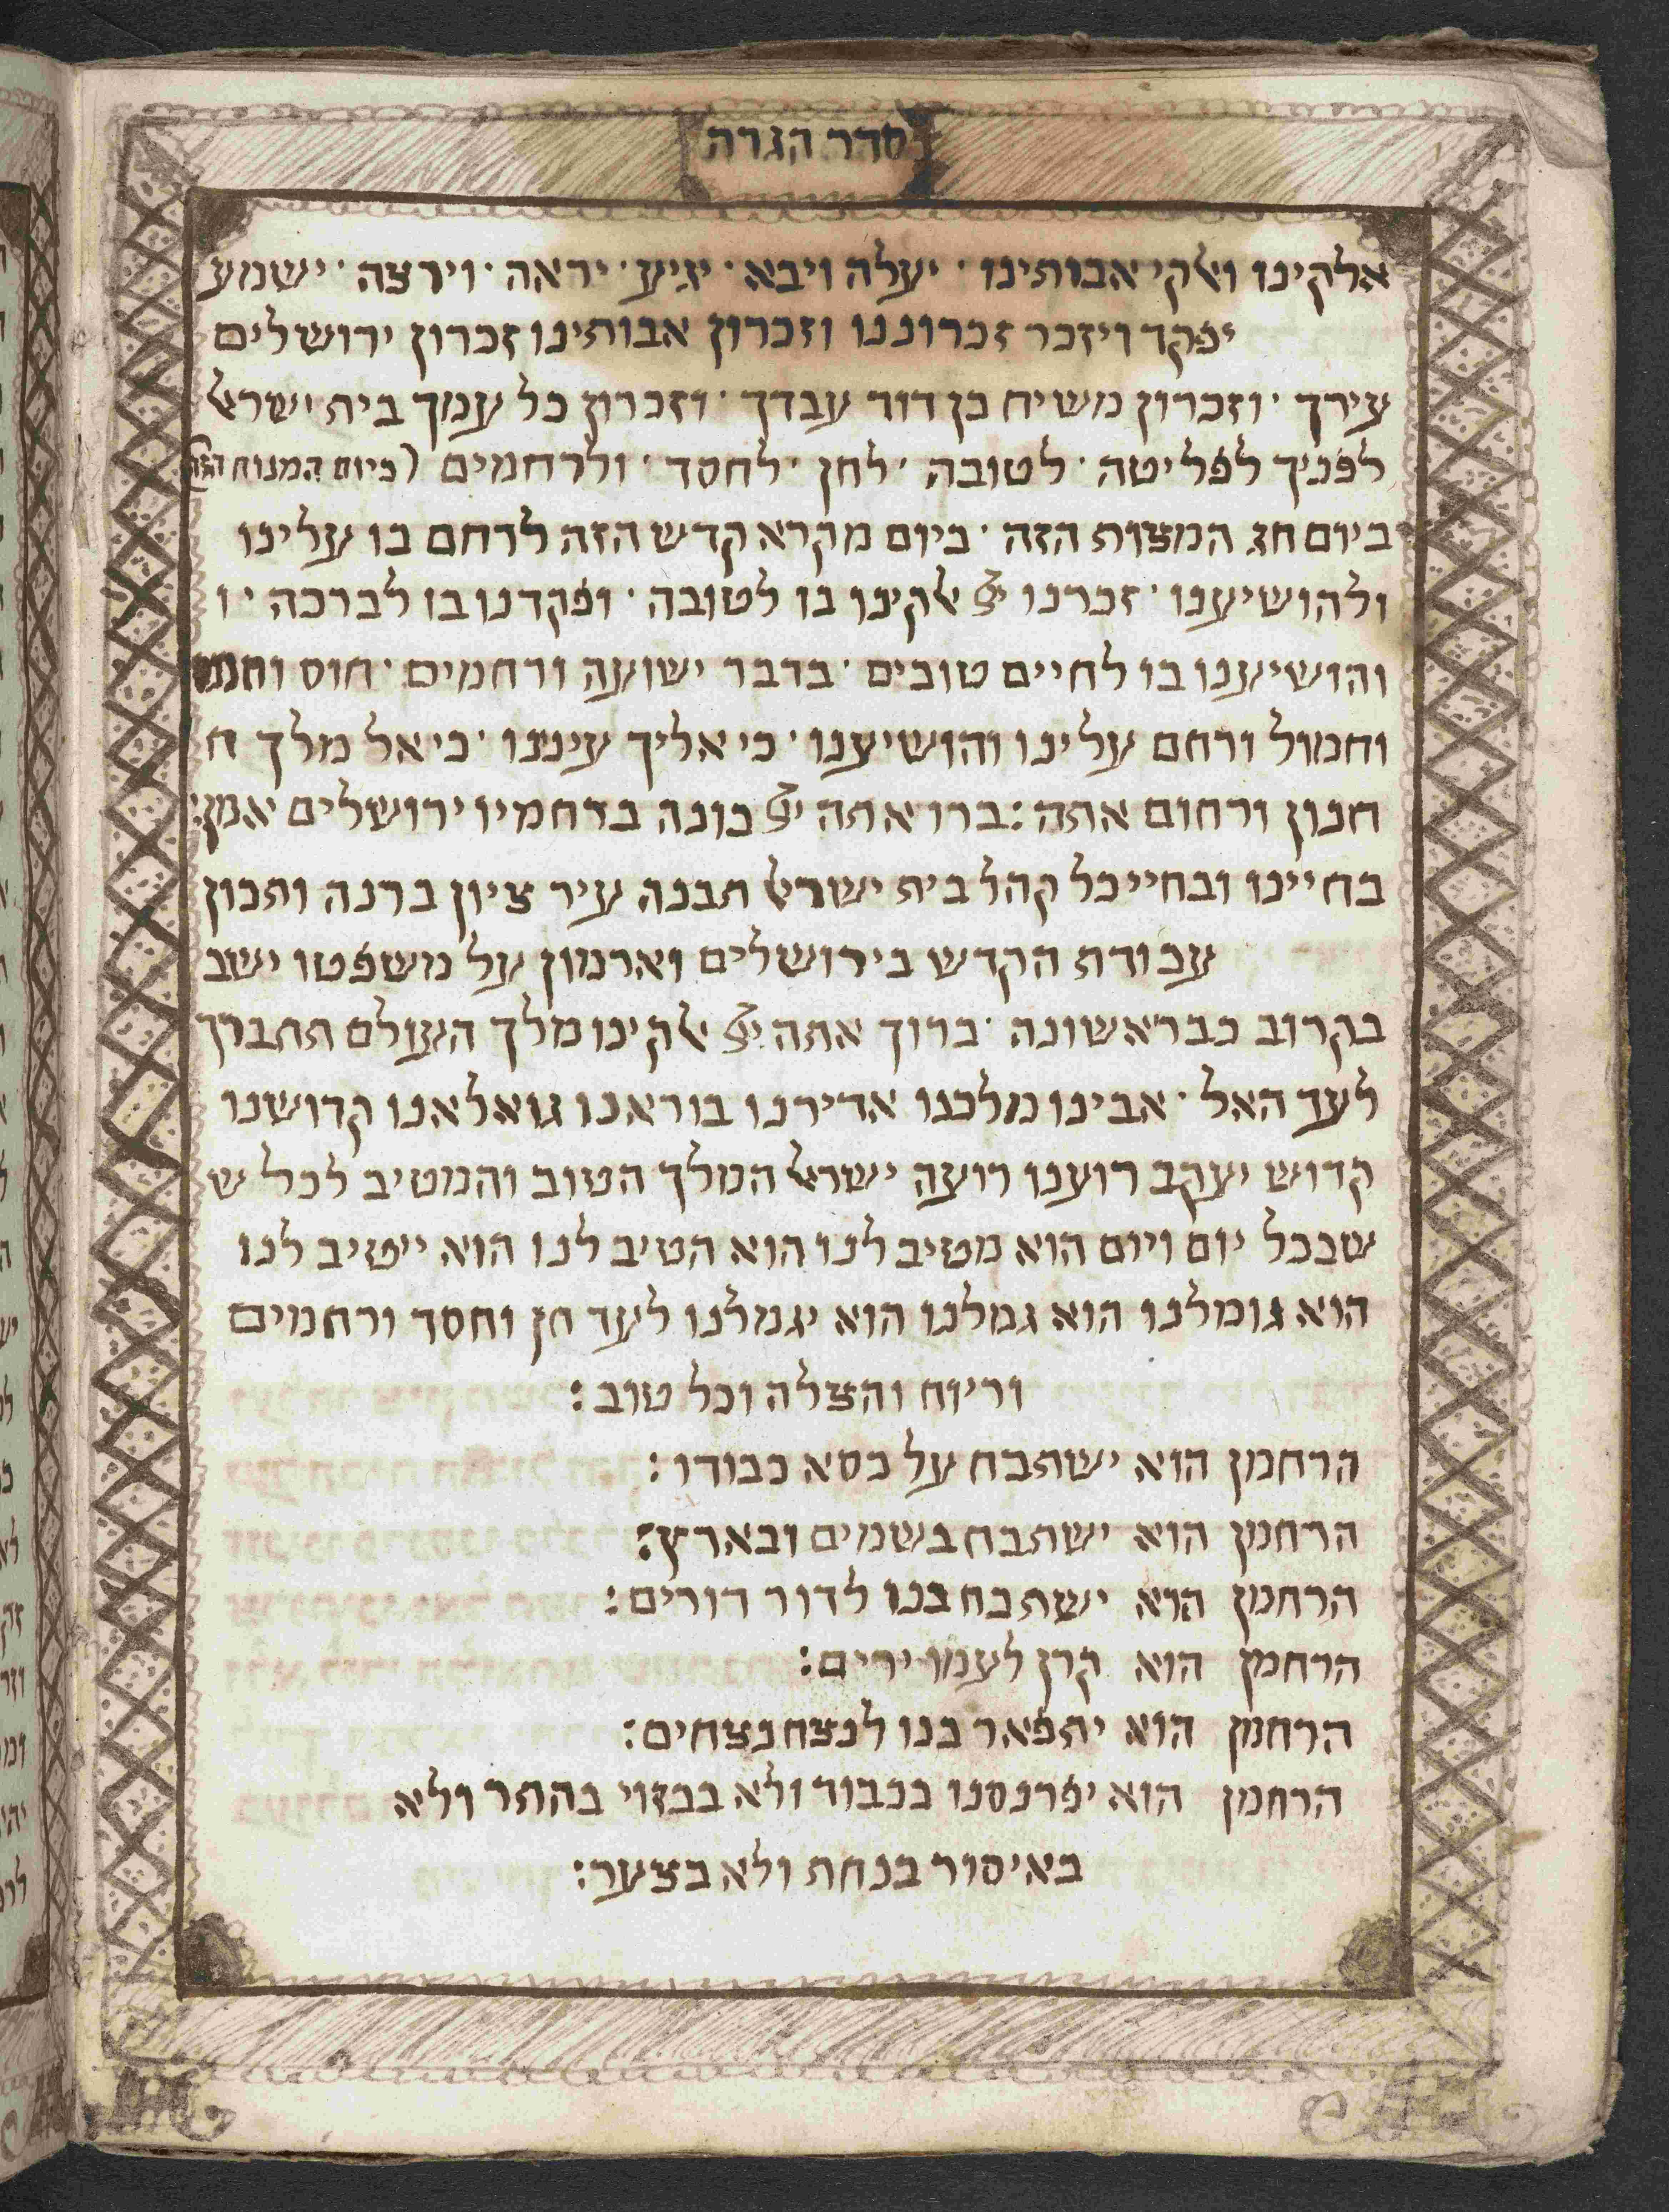 סדר הגדה
אלקינו ואלקי אבותינו · יעלה ויבא · יגיע · יראה · וירצה · ישמע
יפקד ויזכר זכרוננו וזכרון אבותינו זכרון ירושלים
עירך · וזכרון משיח בן דוד עבדך · וזכרון כל עמך בית ישראל
לפניך לפליטה · לטובה · לחן · לחסד · ולרחמים (ביום המנוח הזה
ביום חג המצות הזה · ביום מקרא קדש הזה לרחם בו עלינו
ולהושיענו · זכרנו יי אלקינו בו לטובה · ופקדנו בו לברכה · ו
והושיענו בו לחיים טובים · בדבר ישועה ורחמים · חוס וחננו
וחמול ורחם עלינו והושיענו · כי אליך עינינו · כי אל מלך ח
חנון ורחום אתה : ברו אתה יי בונה ברחמיו ירושלים אמן :
בחיינו ובחיי כל קהל בית ישראל תבנה עיר ציון ברנה ותכון
עבודת הקדש בירושלים וארמון על משפטו ישב
בקרוב כבראשונה · ברוך אתה יי אלקינו מלך העולם תתברך
לעד האל · אבינו מלכנו אדירנו בוראנו גואלאנו קדושנו
קדוש יעקב רוענו רועה ישראל המלך הטוב והמטיב לכל ש
שבכל יום ויום הוא מטיב לנו הוא הטיב לנו הוא ייטיב לנו
הוא גומלנו הוא גמלנו הוא יגמלנו לעד חן וחסד ורחמים
וריוח והצלה וכל טוב :
הרחמן הוא ישתבח על כסא כבודו :
הרחמן הוא ישתבח בשמים ובארץ :
הרחמן הוא ישתבח בנו לדור דורים :
הרחמן הוא קרן לעמו ירים :
הרחמן הוא יתפאר בנו לנצח נצחים :
הרחמן הוא יפרנסנו בכבוד ולא בבזוי בהתר ולא
באיסור בנחת ולא בצער :